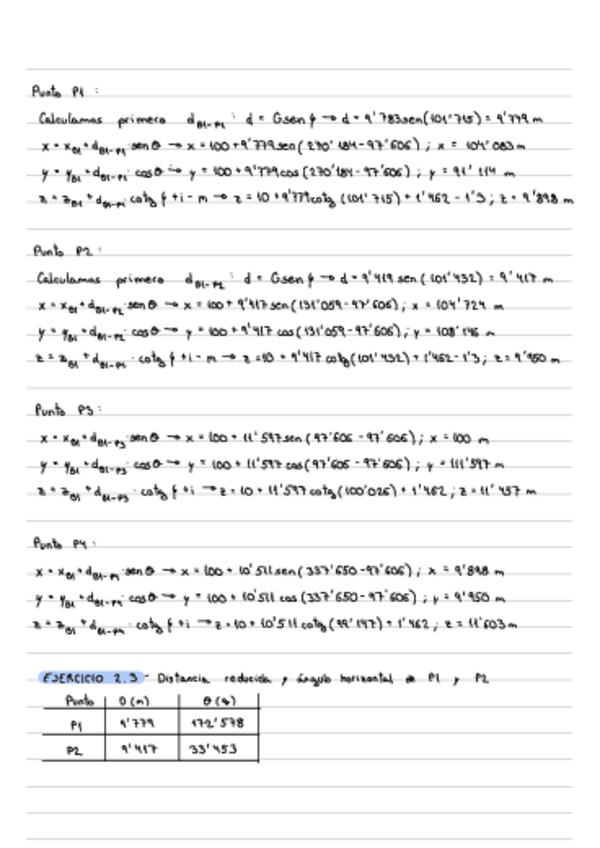 Punto P1 :
Calculamos primero d_B1-P1 : d = G sen φ → d = 9'783 sen(101'715) = 9'779 m
x = x_B1 + d_B1-P1 · sen θ → x = 100 + 9'779 sen(270'184 - 97'606) ; x = 104'083 m
y = y_B1 + d_B1-P1 · cos θ → y = 100 + 9'779 cos(270'184 - 97'606) ; y = 91'114 m
z = z_B1 + d_B1-P1 · cotg φ + i - m → z = 10 + 9'779 cotg (101'715) + 1'462 - 1'3 ; z = 9'898 m
Punto P2 :
Calculamos primero d_B1-P2 : d = G sen φ → d = 9'419 sen (101'432) = 9'417 m
x = x_B1 + d_B1-P2 · sen θ → x = 100 + 9'417 sen(131'059 - 97'606) ; x = 104'724 m
y = y_B1 + d_B1-P2 · cos θ → y = 100 + 9'417 cos(131'059 - 97'606) ; y = 108'146 m
z = z_B1 + d_B1-P2 · cotg φ + i - m → z = 10 + 9'417 cotg(101'432) + 1'462 - 1'3 ; z = 9'950 m
Punto P3 :
x = x_B1 + d_B1-P3 · sen θ → x = 100 + 11'597 sen (97'606 - 97'606) ; x = 100 m
y = y_B1 + d_B1-P3 · cos θ → y = 100 + 11'597 cos(97'606 - 97'606) ; y = 111'597 m
z = z_B1 + d_B1-P3 · cotg φ + i → z = 10 + 11'597 cotg(100'026) + 1'462 ; z = 11'457 m
Punto P4 :
x = x_B1 + d_B1-P4 · sen θ → x = 100 + 10'511 sen(337'650 - 97'606) ; x = 9'898 m
y = y_B1 + d_B1-P4 · cos θ → y = 100 + 10'511 cos (337'650 - 97'606) ; y = 9'950 m
z = z_B1 + d_B1-P4 · cotg φ + i → z = 10 + 10'511 cotg (99'147) + 1'462 ; z = 11'603 m
EJERCICIO 2.3 - Distancia reducida y ángulo horizontal de P1 y P2
Punto D (m) θ (g)
P1 9'779 172'578
P2 9'417 33'453